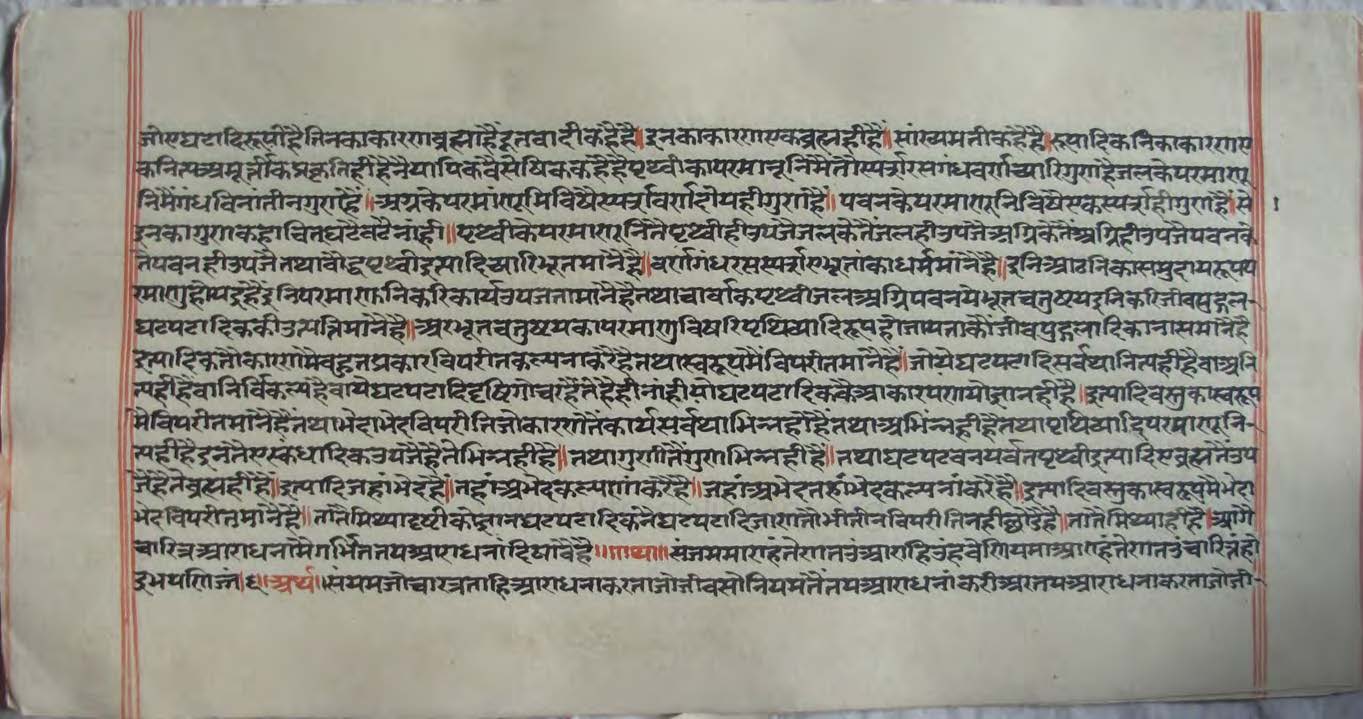 जोएघटादिरूपीहैतिनकाकारणाब्रह्महैद्वैतवादीकहैहै॥इनकाकारणएकब्रह्महीहै॥सांख्यमतीकहैहै॥रूपादिकनिकाकारणए
कनित्यअमूर्त्तीकप्रकृतिहीहैनैयायिकवैसेषिककहैहैपृथ्वीकापरमानूनिमैतौस्पर्शरसगंधवर्णच्यारिगुणहैजलकेपरमाणू
निमैंगंधविनातीनगुणहैं॥अग्नकेपरमांणूनिविषैस्पर्शवर्णदोयहीगुणहैं॥पवनकेपरमाणूनिविषैएकस्पर्शहीगुणहैं॥मै १
इनकागुणकदाचितघटैबढैनांही॥पृथ्वीकेपरमाणूनितैपृथ्वीहीउपजैजलकेतैंजलहीउपजैअग्निकैतैअग्निहीउपजैपवनकै
तैपवनहीउपजैतथाबौद्धपृथ्वीइत्यादिच्यारिभूतमांनैहै॥वर्णगंधरसस्पर्शएभूतांकाधर्म्ममांनैहै॥इनिआठनिकासमुदायरूपप
रमाणुहोयहैइनिपरमाणूनिकरिकार्यउपजतामांनैहैतथाचार्वाकपृथ्वीजलअग्निपवनयेभूतचतुष्टयइनिकरिजीवपुद्गल-
घटपटादिककीउत्पत्तिमांनैहै॥अरभूतचतुष्टयकापरमाणुविषरिपृथिव्यादिरूपहोजायताकौंजीवपुद्गलादिकानासमांनैहै
इत्यादिकतौकारणमैबहुतप्रकारविपरीतकल्पनाकरैहैतथास्वरूपमैंविपरीतमांनैहै॥जोयेघटपटादिसर्वथानित्यहीहैवाअनि
त्यहीहैवानिर्विकल्पहैवायेघटपटादिदृष्टिगोचरहैतेहैहीनांहीयोघटपटादिककैआकारपरणयोज्ञानहीहै॥इत्यादिवस्तुकास्वरूप
मैविपरीतमांनैहैतथाभेदाभेदविपरीतिजोकारणतैंकार्यसर्वथाभिन्नहीहैतथाअभिंन्नहीहैतथापृथिव्यादिपरमाणूनि-
त्यहीहैइनतैस्कंधादिकउपजैहैतेभिन्नहीहै॥तथागुणीतैंगुणभिन्नहीहै॥तथाघटपटवनपर्वतपृथ्वीइत्यादिएब्रह्मतैंउप
जैहैतेब्रह्महीहै॥इत्यादिजहांभेदहै॥तहांअभेदकल्पणांकरैहै॥जहांअभेदतहांभेदकल्पनांकरैहै॥इत्यादिवस्तुकास्वरूपमैभेदा
भेदविपरीतमांनैहै॥तातैमिथ्यादृष्टीकोज्ञानघटपटादिकंनैघटपटादिजाणतौभीतीनविपरीतिनहीछोडैहै॥तातैमिथ्याहीहै॥आगै
चारित्रआराधनामैगर्भिततपआराधनांदिषावैहै॥॥गाथा॥संजममाराहंतेणतउआराहिउहवेणियमाआराहंतेणतउंचारित्तंहो
इभयणिज्जं॥६॥अर्थ॥संयमजोचारत्रताहिआराधनाकरताजोजीवसोनियमतैंतपआराधनांकरीअरतपआराधनाकरताजोजी-